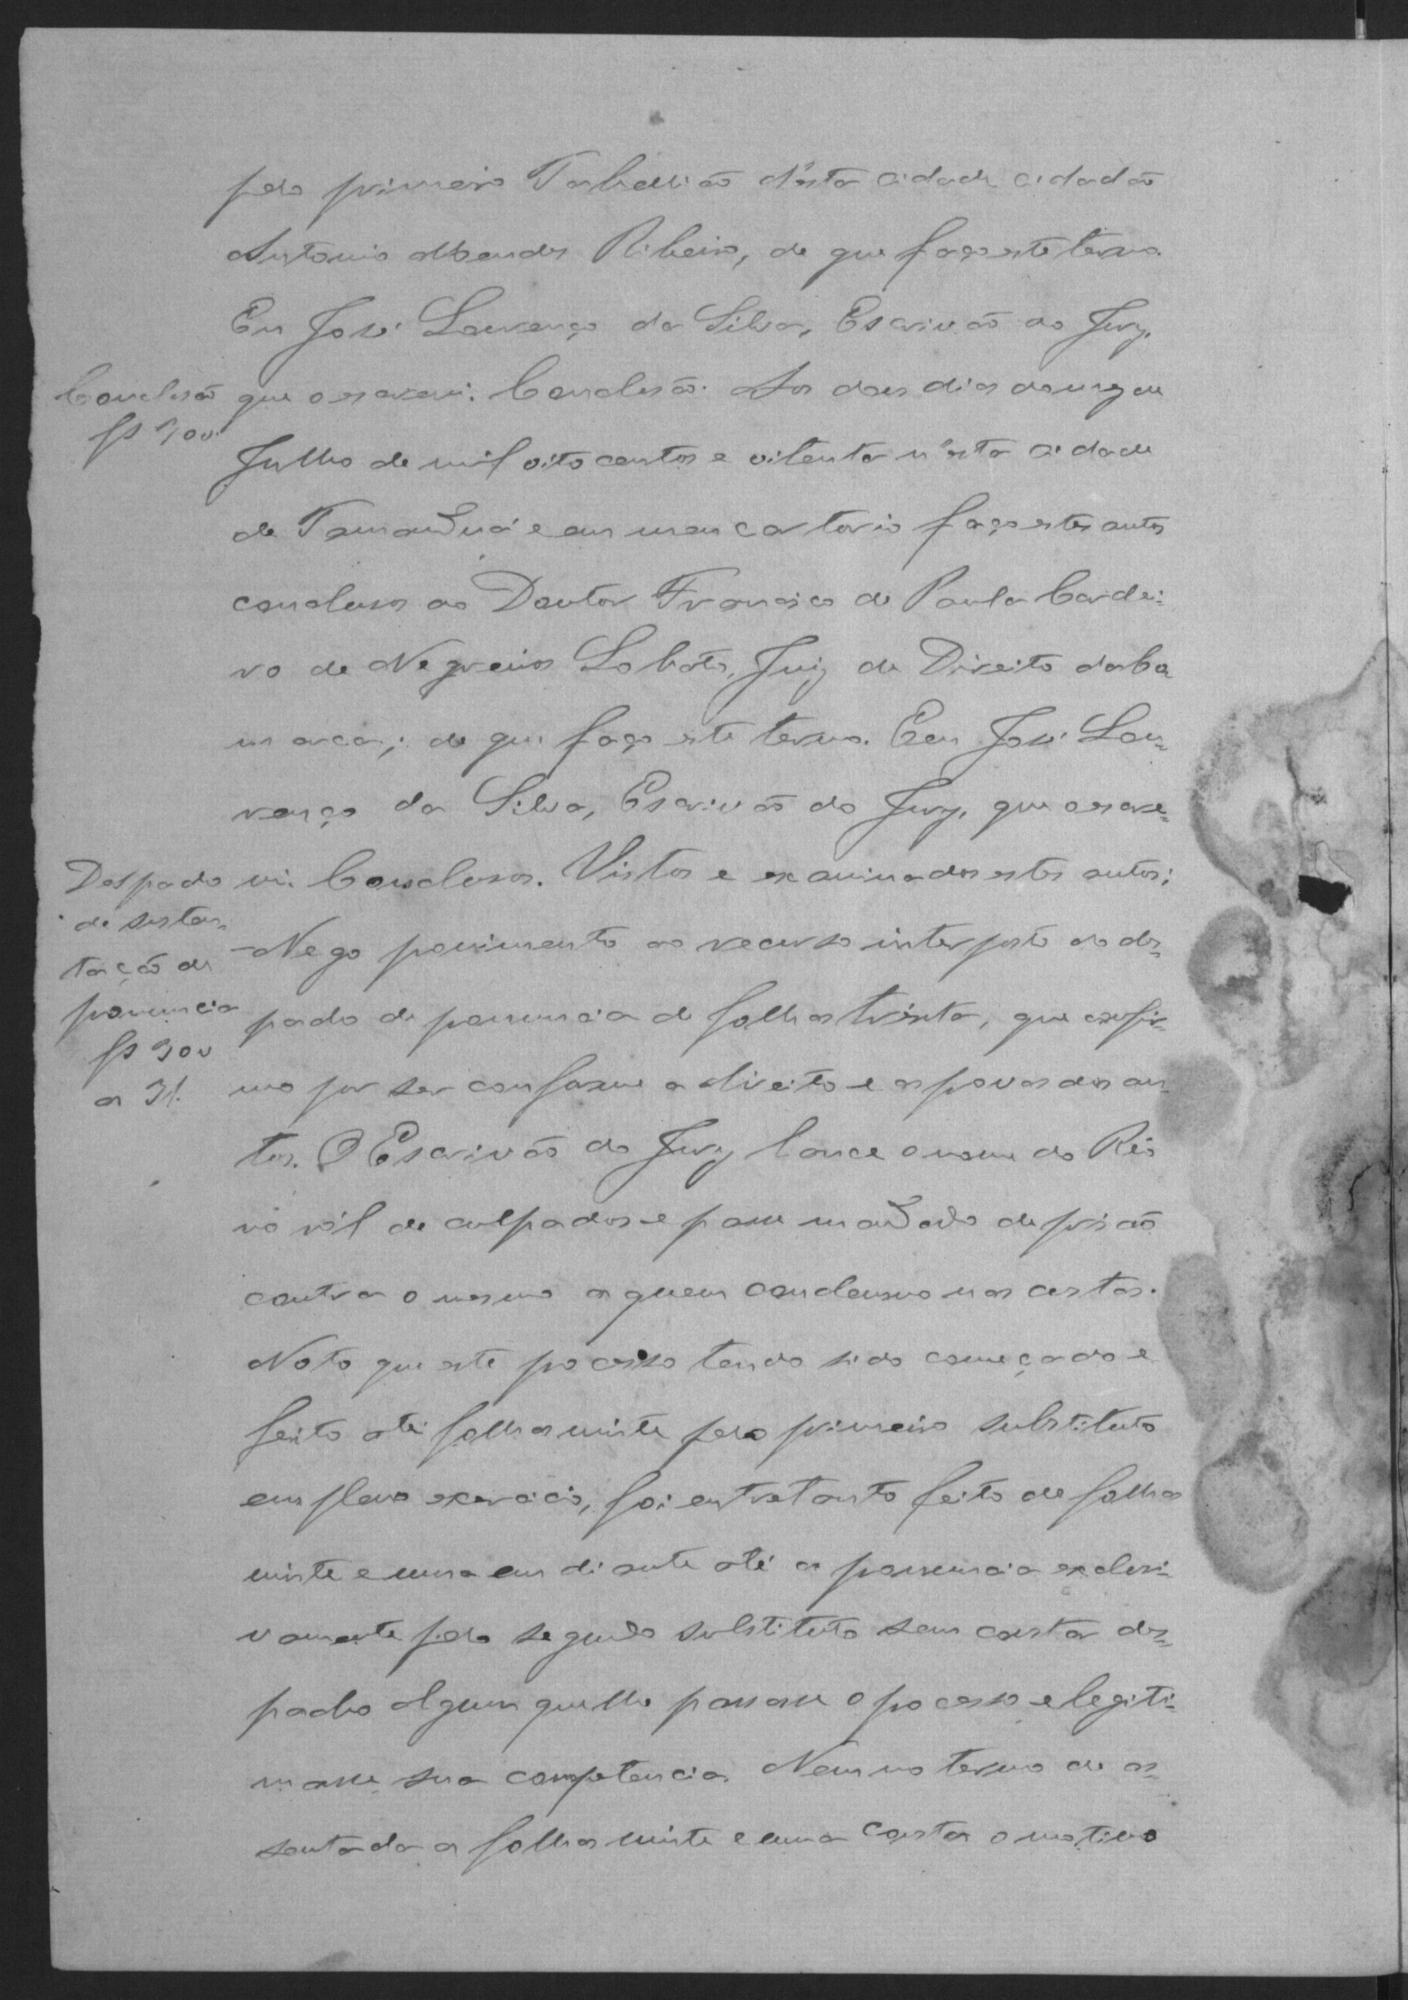 pelo primeiro Tabellião d'esta cidade cidadão
Antonio Mendes Ribeiro, de que faço este termo.
Eu José Lourenço da Silva, Escrivão do Jury,
Conclusão
fls 30v.
que o escrevi. Conclusão. Aos dous dias do mez de
Julho de mil oito centos e oitenta n'esta cidade
de Tamanduá e em meu cartorio faço estes autos
conclusos ao Doutor Francisco de Paula Cordei-
ro de Negreiros Lobato, Juiz de Direito da Co
marca; de que faço este termo. Eu José Lou-
renço da Silva, Escrivão do Jury, que o escre-
Despacho
de susten-
tação de
pronuncia
fls 30v
a 31.
vi. Conclusos. Vistos e examinados estes autos;
Nego provimento ao recurso interposto do des-
pacho de pronuncia de folhas trinta, que confir-
mo por ser conforme a direito e as provas dos au-
tos. O Escrivão do Jury lance o nome do Réo
no ról de culpados e passe mandado de prisão
contra o mesmo a quem condemno nas custas.
Noto que este processo tendo sido começado e
feito até folhas vinte pelo primeiro substituto
em pleno exercicio, foi entretanto feito de folhas
vinte e uma em diante até a pronuncia exclusi-
vamente pelo segundo substituto sem constar des-
pacho algum que lhe passasse o processo e legiti-
masse sua competencia. Nem no termo de as-
sentada a folhas vinte e uma consta o motivo